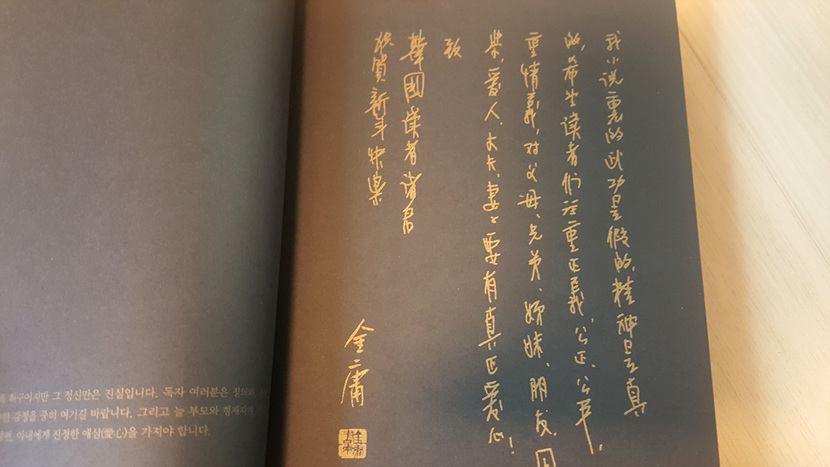 我小说裏的武功是假的,精神是真
的,希望读者们注重正義,公正,公平,
重情義,对父母、兄弟、姊妹、朋友、同
業、爱人、丈夫、妻子要有真正爱心!
致
韓國读者诸君
恭賀新年快樂
金庸
허구이지만 그 정신만은 진실입니다. 독자 여러분은 정의와,
감정을 중히 여기길 바랍니다. 그리고 늘 부모와 형제자매,
아내에게 진정한 애심(愛心)을 가져야 합니다.